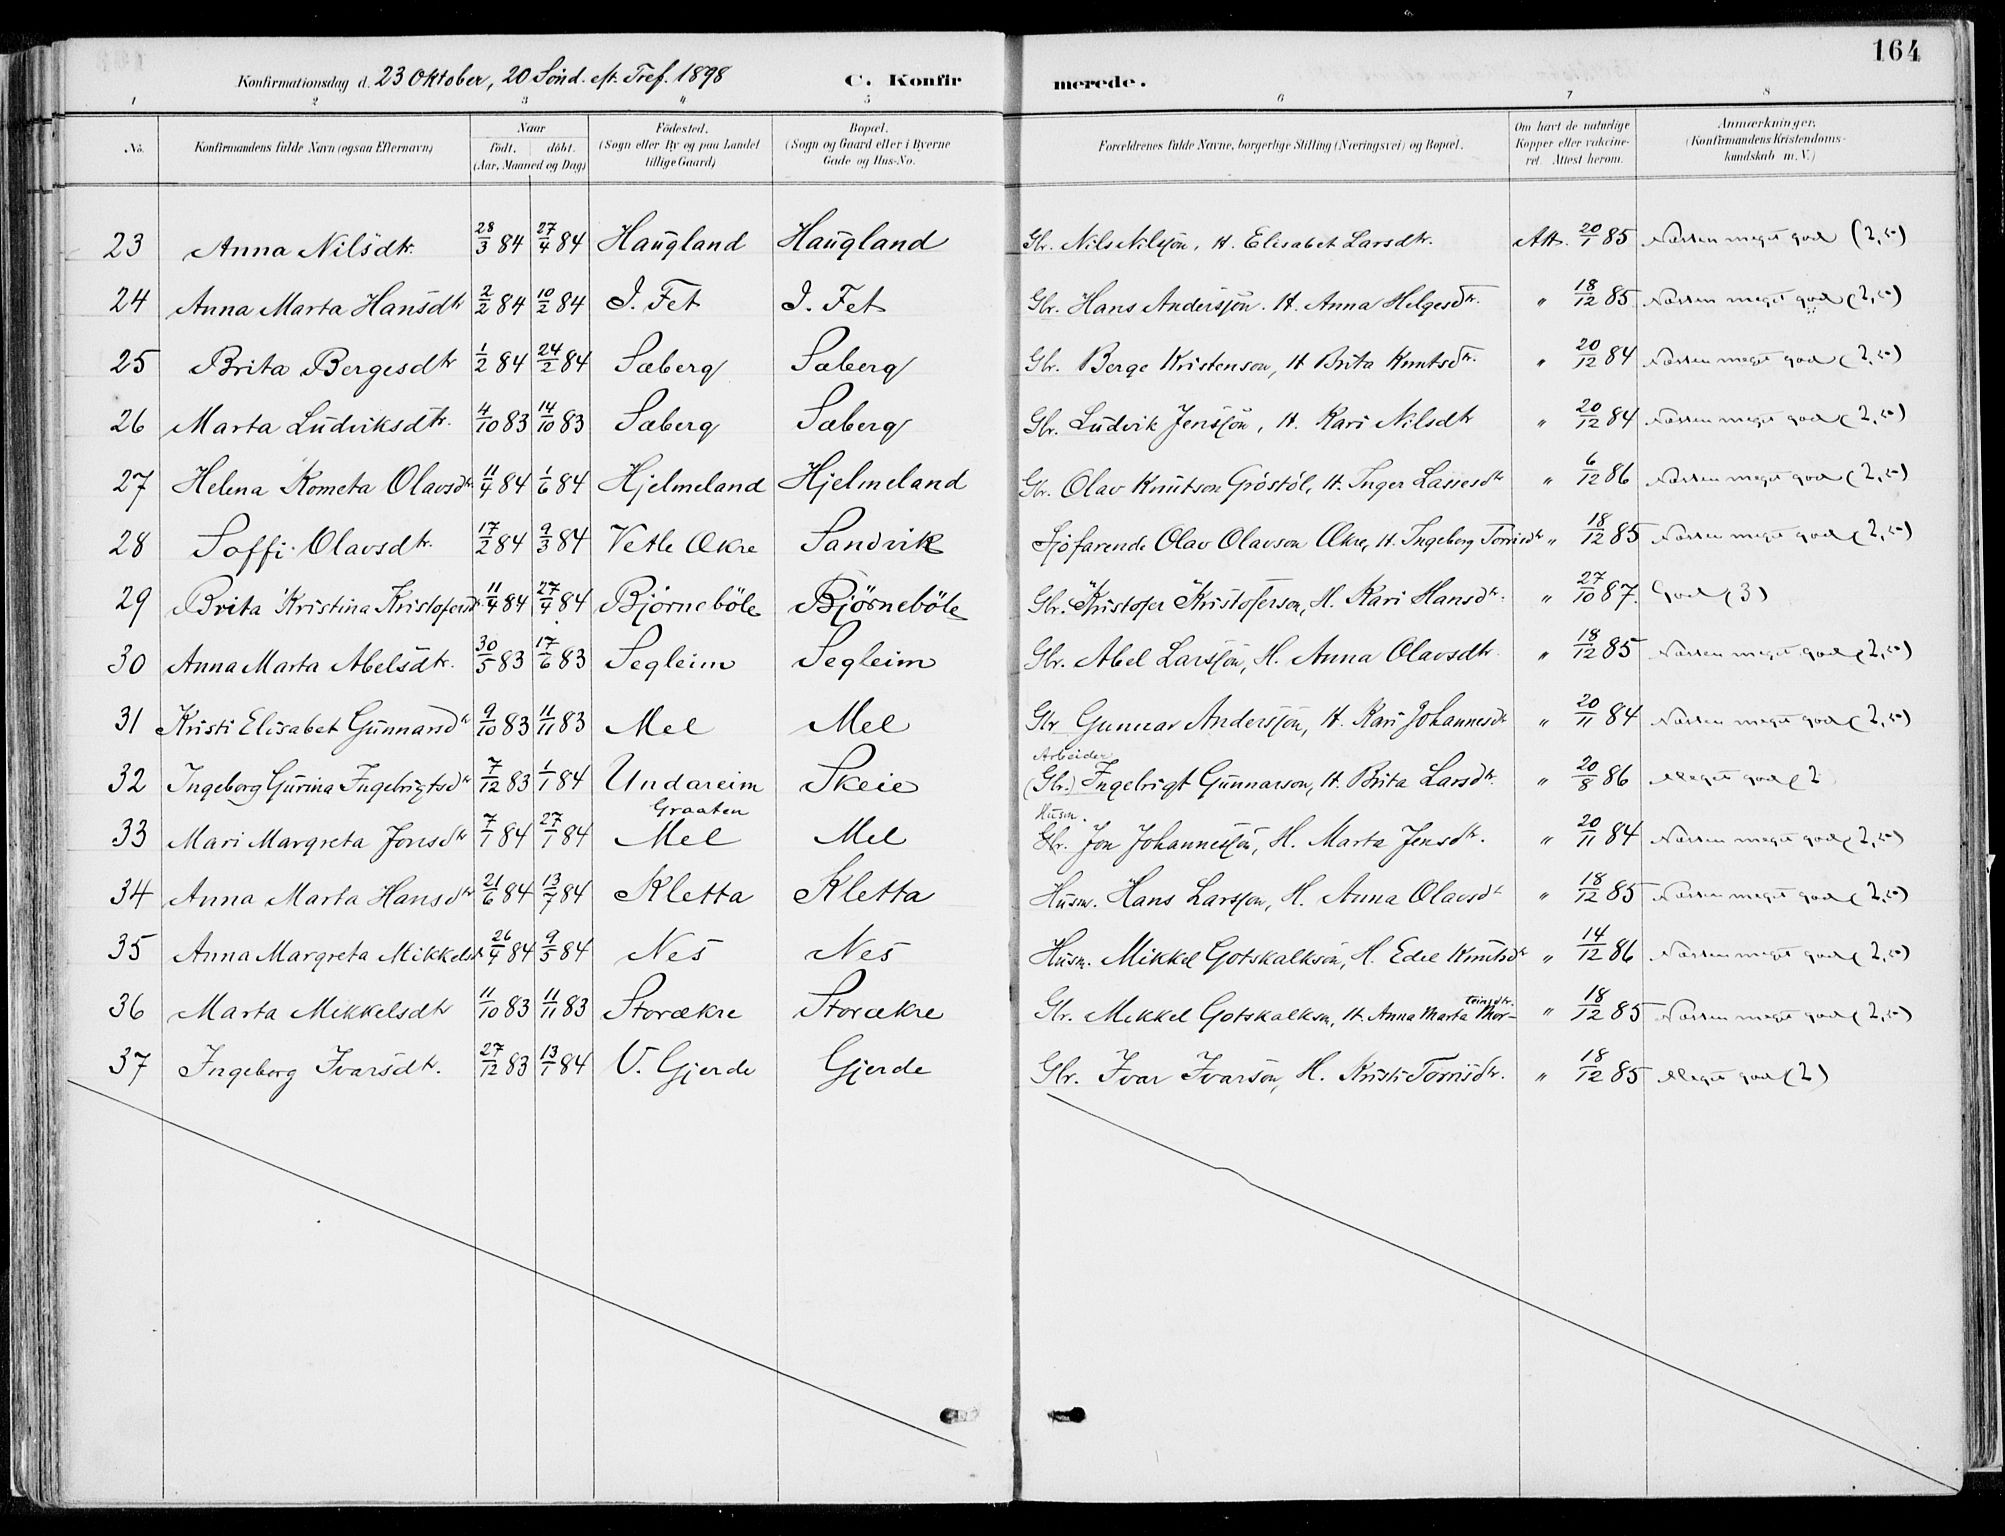 164
Konfirmationsdag d. 23 Oktober, 20 Sönd. eft. Tref. 1898 C. Konfirmerede.
1 2 3 4 5 6 7 8
No. Konfirmandens fulde Navn (ogsaa Efternavn) Naar födt. döbt. (Aar, Maaned og Dag) Födested. (Sogn eller By og paa Landet tillige Gaard) Bopæl. (Sogn og Gaard eller i Byerne Gade og Hus-No. Forældrenes fulde Navne, borgerlige Stilling (Næringsvei) og Bopæl. Om havt de naturlige Kopper eller vakcineret. Attest herom. Anmærkninger. (Konfirmandens Kristendomskundskab m. V.)
23 Anna Nilsdtr. 28/3 84 27/4 84 Haugland Haugland Gbr. Nils Nilsson, H. Elisabet Larsdtr. Att. 20/1 85 Næsten meget god (2,50)
24 Anna Marta Hansdtr 2/2 84 10/2 84 I. Fet I. Fet Gbr. Hans Andersson. H. Anna Helgesdtr. " 18/12 85 Næsten meget god (2,50)
25 Brita Bergesdtr 1/2 84 24/2 84 Sæberg Sæberg Gbr. Berge Kristenson, H Brita Knutsdtr. " 20/12 84 Næsten meget god (2,50)
26 Marta Ludviksdtr. 4/10 83 14/10 83 Sæberg Sæberg Gbr. Ludvik Jensson, H. Kari Nilsdtr " 20/12 84 Næsten meget god (2,50)
27 Helena Kometa Olavsdtr 11/4 84 1/6 84 Hjelmeland Hjelmeland Gbr. Olav Knutson Gröstöl, H. Inger Lassesdtr " 6/12 86 Næsten meget god (2,50)
28 Soffi Olavsdtr. 17/2 84 9/3 84 Vetle Ækre Sandvik Sjöfarende Olav Olavson Ækre, H. Ingeborg Torrisdtr " 18/12 85 Næsten meget god (2,50)
29 Brita Kristina Kristofersdtr 11/4 84 27/4 84 Björneböle Björneböle Gbr. Kristofer Kristoferson, H. Kari Hansdtr. " 27/10 87. God (3)
30 Anna Marta Abelsdtr. 30/5 83 17/6 83 Segleim Segleim Gbr. Abel Larsson, H. Anna Olavsdtr. " 18/12 85 Næsten meget god (2,50)
31 Kristi Elisabet Gunnarsdtr 9/10 83 11/11 83 Mel Mel Gbr Gunnar Andersson, H. Kari Johannesdtr " 20/11 84 Næsten meget god (2,50)
32 Ingeborg Gurina Ingebrigtsdtr 7/12 83 1/1 84 Undareim Skeie Arbeider (Gbr.) Ingebrigt Gunnarson, H. Brita Larsdtr. " 20/8 86 Meget god (2
33 Mari Margreta Jonsdtr 7/1 84 27/1 84 Graaten Mel Mel Husm. Gbr. Jon Johannesson, H. Marta Jensdtr. " 20/11 84 Næsten meget god (2,50)
34 Anna Marta Hansdtr 21/6 84 13/7 84 Kletta Kletta Husm. Hans Larsson, H. Anna Olavsdtr " 18/12 85 Næsten meget god (2,50)
35 Anna Margreta Mikkelsdtr 26/4 84 9/5 84 Nes Nes Husm. Mikkel Gotskalkson, H. Edel Knutsdtr " 14/12 86 Næsten meget god (2,50)
36 Marta Mikkelsdtr 11/10 83 11/11 83 Storækre Storækre Gbr. Mikkel Gotskalkson, H. Anna Marta Thorteinsdtr. " 18/12 85 Næsten meget god (2,50)
37 Ingeborg Ivarsdtr. 27/12 83 13/1 84 V. Gjerde Gjerde Gbr. Ivar Ivarson, H. Kristi Torrisdtr. " 18/12 85 Meget god (2)